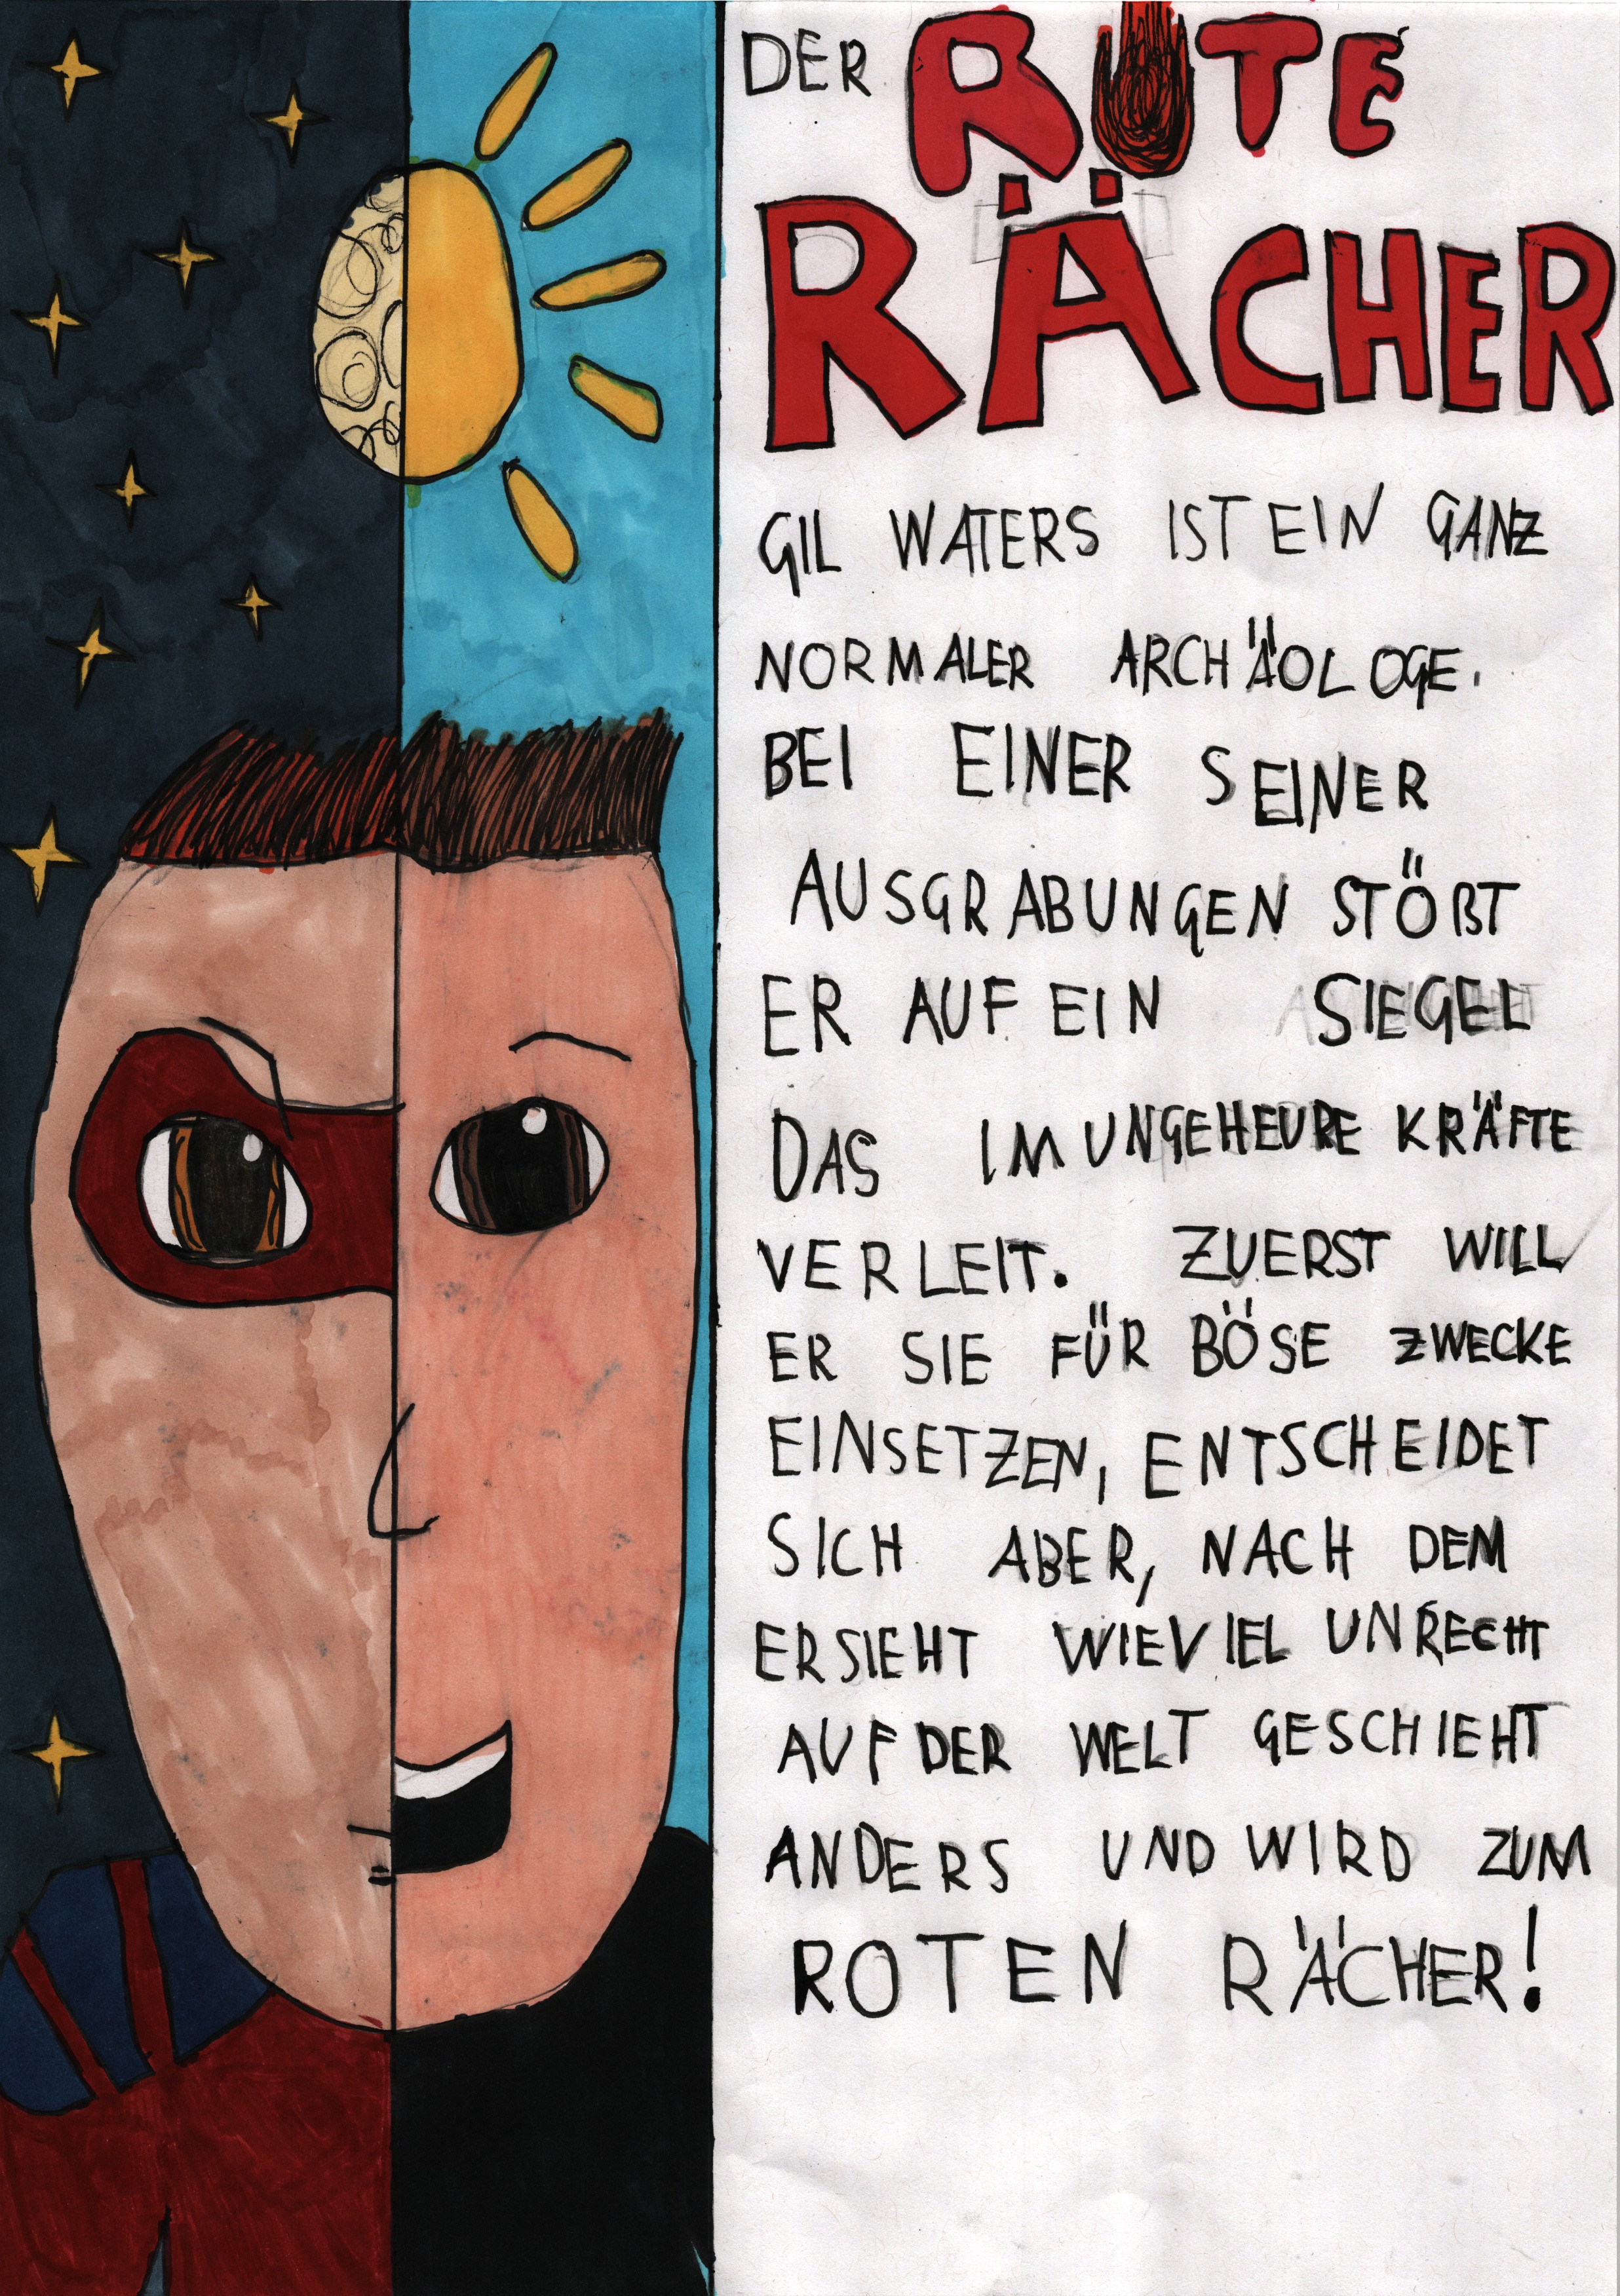 DER ROTE
RÄCHER
GIL WATERS IST EIN GANZ
NORMALER ARCHÄOLOGE.
BEI EINER SEINER
AUSGRABUNGEN STÖßT
ER AUF EIN SIEGEL
DAS IM UNGEHEURE KRÄFTE
VERLEIT. ZUERST WILL
ER SIE FÜR BÖSE ZWECKE
EINSETZEN, ENTSCHEIDET
SICH ABER, NACH DEM
ER SIEHT WIEVIEL UNRECHT
AUF DER WELT GESCHIEHT
ANDERS UND WIRD ZUM
ROTEN RÄCHER!